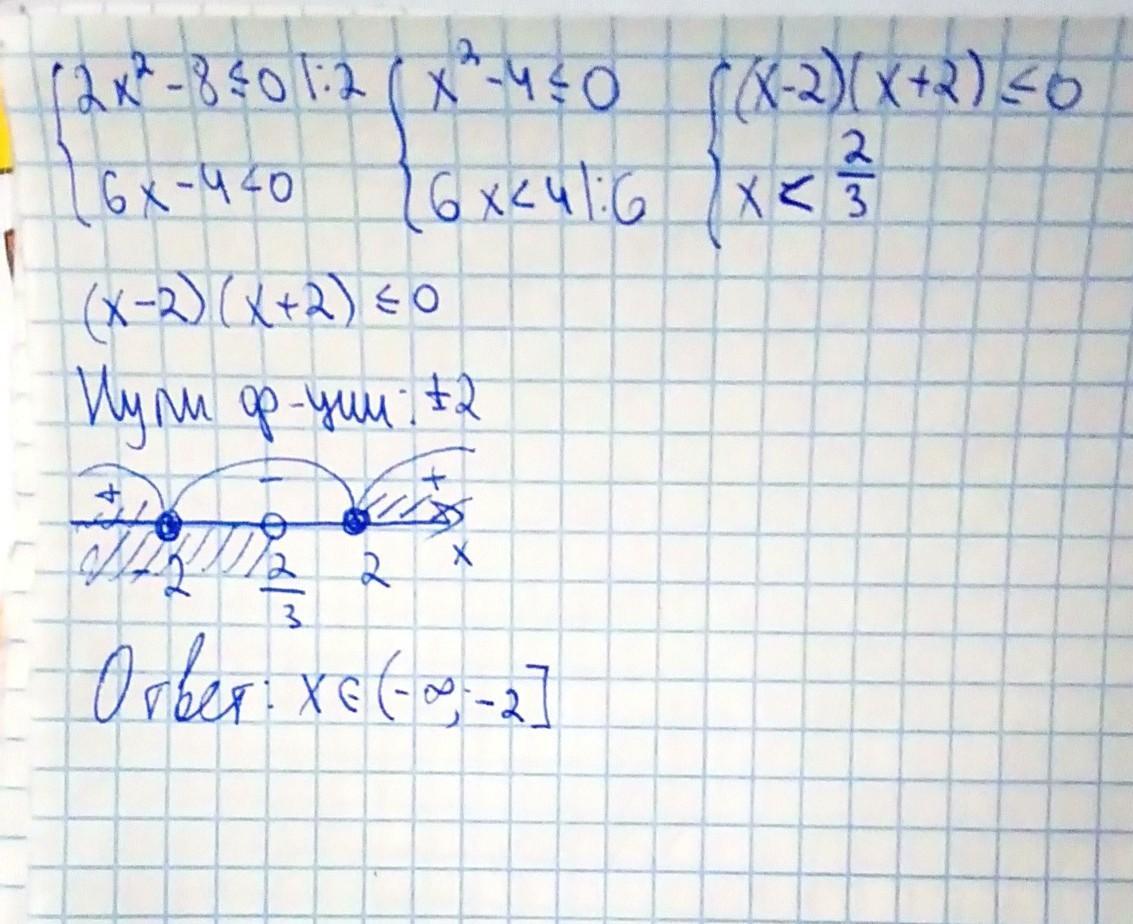 {2x² - 8 ≤ 0 |:2 {x² - 4 ≤ 0 {(x-2)(x+2) ≤ 0
{6x - 4 < 0 {6x < 4 |:6 {x < 2/3
(x-2)(x+2) ≤ 0
Нули ф-ции: ±2
+ - +
-2 2/3 2 x
Ответ: x ∈ (-∞; -2]